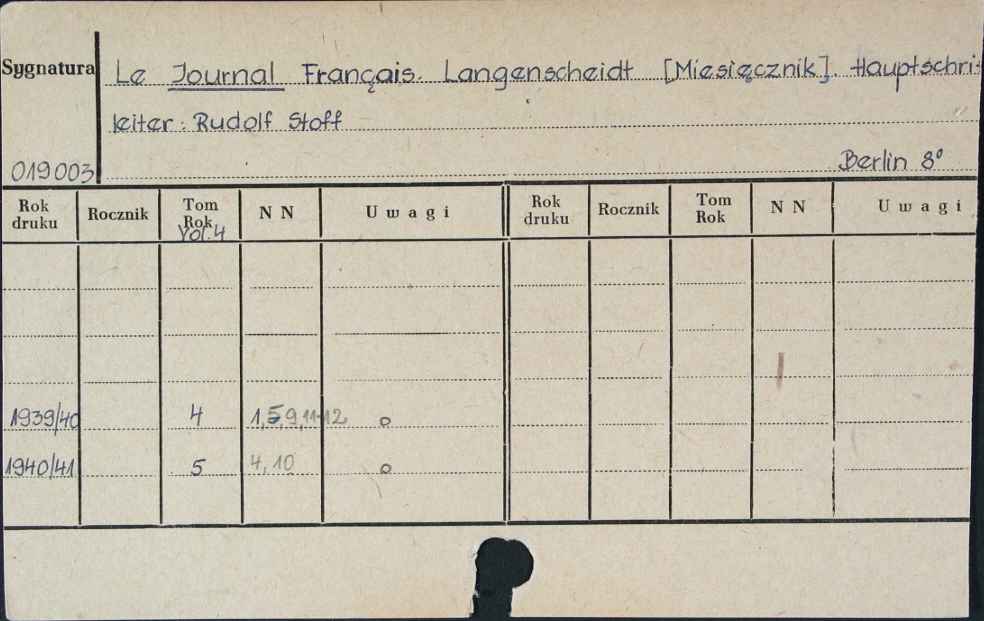 Sygnatura Le Journal Français. Langenscheidt [Miesięcznik]. Hauptschri-
leiter: Rudolf Stoff
019003 Berlin 8°
Rok druku Rocznik Tom Rok Vol.4 N N Uwagi Rok druku Rocznik Tom Rok N N Uwagi
1939/40 4 1,5,9,11-12 o
1940/41 5 4,10 o